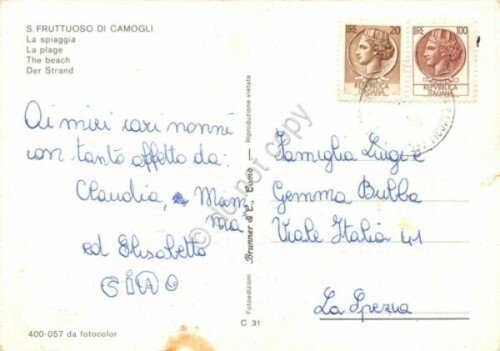 S. FRUTTUOSO DI CAMOGLI
La spiaggia
La plage
The beach
Der Strand
Ai miei cari nonni
con tanto affetto da:
Claudia, Mam
mia
ed Elisabetta
GINO
400-057 da fotocolor
Fotoedizioni Brunner & C., Como Riproduzione vietata
C 31
do not copy
LIRE 20
REPVBBLICA
ITALIANA
LIRE 100
REPVBBLICA
ITALIANA
Famiglia Luigi e
Gemma Bubba
Viale Italia 41
La Spezia